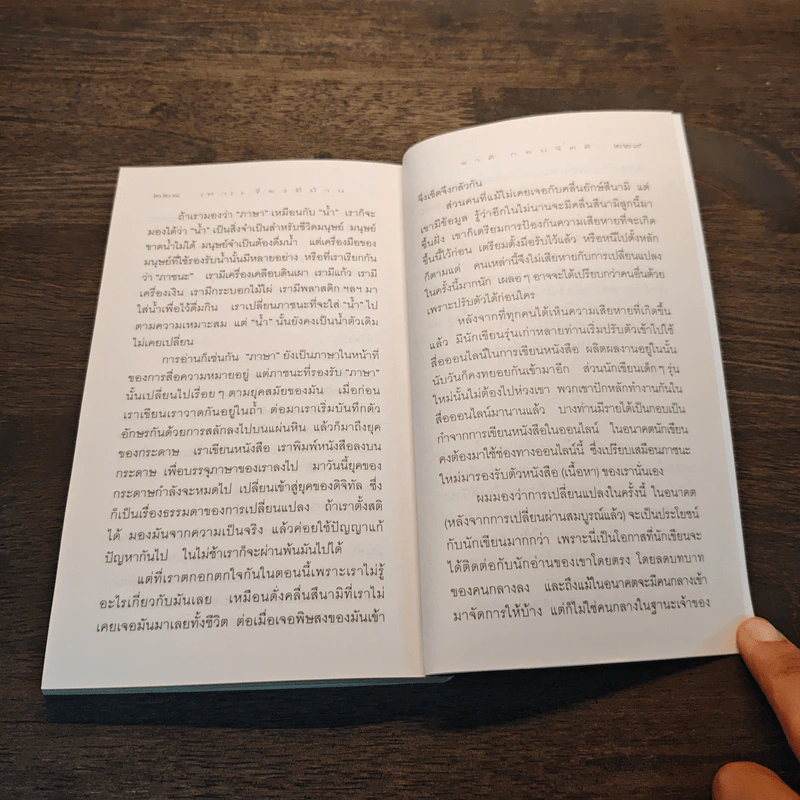 ถ้าเรามองว่า "ภาษา" เหมือนกับ "น้ำ" เราก็จะ
มองได้ว่า "น้ำ" เป็นสิ่งจำเป็นสำหรับชีวิตมนุษย์ มนุษย์
ขาดน้ำไม่ได้ มนุษย์จำเป็นต้องดื่มน้ำ แต่เครื่องมือของ
มนุษย์ที่ใช้รองรับน้ำนั้นมีหลายอย่าง หรือที่เราเรียกกัน
ว่า "ภาชนะ" เรามีเครื่องเคลือบดินเผา เรามีแก้ว เรามี
เครื่องเงิน เรามีกระบอกไม้ไผ่ เรามีพลาสติก ฯลฯ มา
ใส่น้ำเพื่อไว้ดื่มกิน เราเปลี่ยนภาชนะที่จะใส่ "น้ำ" ไป
ตามความเหมาะสม แต่ "น้ำ" นั้นยังคงเป็นน้ำตัวเดิม
ไม่เคยเปลี่ยน
การอ่านก็เช่นกัน "ภาษา" ยังเป็นภาษาในหน้าที่
ของการสื่อความหมายอยู่ แต่ภาชนะที่รองรับ "ภาษา"
นั้นเปลี่ยนไปเรื่อย ๆ ตามยุคสมัยของมัน เมื่อก่อน
เราเขียนเราวาดกันอยู่ในถ้ำ ต่อมาเราเริ่มบันทึกตัว
อักษรกันด้วยการสลักลงไปบนแผ่นหิน แล้วก็มาถึงยุค
ของกระดาษ เราเขียนหนังสือ เราพิมพ์หนังสือลงบน
กระดาษ เพื่อบรรจุภาษาของเราลงไป มาวันนี้ยุคของ
กระดาษกำลังจะหมดไป เปลี่ยนเข้าสู่ยุคของดิจิทัล ซึ่ง
ก็เป็นเรื่องธรรมดาของการเปลี่ยนแปลง ถ้าเราตั้งสติ
ได้ มองมันจากความเป็นจริง แล้วค่อยใช้ปัญญาแก้
ปัญหากันไป ในไม่ช้าเราก็จะผ่านพ้นมันไปได้
แต่ที่เราตกอกตกใจกันในตอนนี้เพราะเราไม่รู้
อะไรเกี่ยวกับมันเลย เหมือนดั่งคลื่นสึนามิที่เราไม่
เคยเจอมันมาเลยทั้งชีวิต ต่อเมื่อเจอพิษสงของมันเข้า
๒๒๙
จึงเข็ดจึงกลัวกัน
ส่วนคนที่แม้ไม่เคยเจอกับคลื่นยักษ์สึนามิ แต่
เขามีข้อมูล รู้ว่าอีกในไม่นานจะมีคลื่นสึนามิลูกนี้มา
ขึ้นฝั่ง เขาก็เตรียมการป้องกันความเสียหายที่จะเกิด
ขึ้นนี้ไว้ก่อน เตรียมตั้งมือรับไว้แล้ว หรือหนีไปตั้งหลัก
ก็ตามแต่ คนเหล่านี้จึงไม่เสียหายกับการเปลี่ยนแปลง
ในครั้งนี้มากนัก เผลอ ๆ อาจจะได้เปรียบกว่าคนอื่นด้วย
เพราะปรับตัวได้ก่อนใคร
หลังจากที่ทุกคนได้เห็นความเสียหายที่เกิดขึ้น
แล้ว มีนักเขียนรุ่นเก่าหลายท่านเริ่มปรับตัวเข้าไปใช้
สื่อออนไลน์ในการเขียนหนังสือ ผลิตผลงานอยู่ในนั้น
นับวันก็คงทยอยกันเข้ามาอีก ส่วนนักเขียนเด็ก ๆ รุ่น
ใหม่นั้นไม่ต้องไปห่วงเขา พวกเขาปักหลักทำงานกันใน
สื่อออนไลน์มานานแล้ว บางท่านมีรายได้เป็นกอบเป็น
กำจากการเขียนหนังสือในออนไลน์ ในอนาคตนักเขียน
คงต้องมาใช้ช่องทางออนไลน์นี้ ซึ่งเปรียบเสมือนภาชนะ
ใหม่มารองรับตัวหนังสือ (เนื้อหา) ของเรานั่นเอง
ผมมองว่าการเปลี่ยนแปลงในครั้งนี้ ในอนาคต
(หลังจากการเปลี่ยนผ่านสมบูรณ์แล้ว) จะเป็นประโยชน์
กับนักเขียนมากกว่า เพราะนี่เป็นโอกาสที่นักเขียนจะ
ได้ติดต่อกับนักอ่านของเขาโดยตรง โดยลดบทบาท
ของคนกลางลง และถึงแม้ในอนาคตจะมีคนกลางเข้า
มาจัดการให้บ้าง แต่ก็ไม่ใช่คนกลางในฐานะเจ้าของ